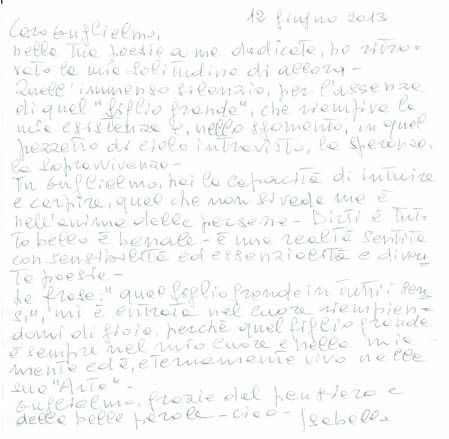 12 giugno 2013
Caro Guglielmo,
nella tua poesia a me dedicata, ho ritro-
vato la mia solitudine di allora -
Quell'immenso silenzio, per l'assenza
di quel "figlio grande", che riempiva la
mia esistenza e, nello sgomento, in quel
pezzetto di cielo intravisto, la speranza,
la sopravvivenza -
Tu Guglielmo, hai la capacità di intuire
e carpire, quel che non si vede ma è
nell'anima delle persone - Dirti è tut-
to bello è banale - è una realtà sentita
con sensibilità ed essenzialità e diven
ta poesia -
La frase: "quel figlio grande in tutti i sen
si", mi è entrata nel cuore riempien-
domi di gioia, perché quel figlio grande
è sempre nel mio cuore e nella mia
mente ed è, eternamente vivo nella
sua "Arte" -
Guglielmo, grazie del pensiero e
della belle parole - ciao - Isabella